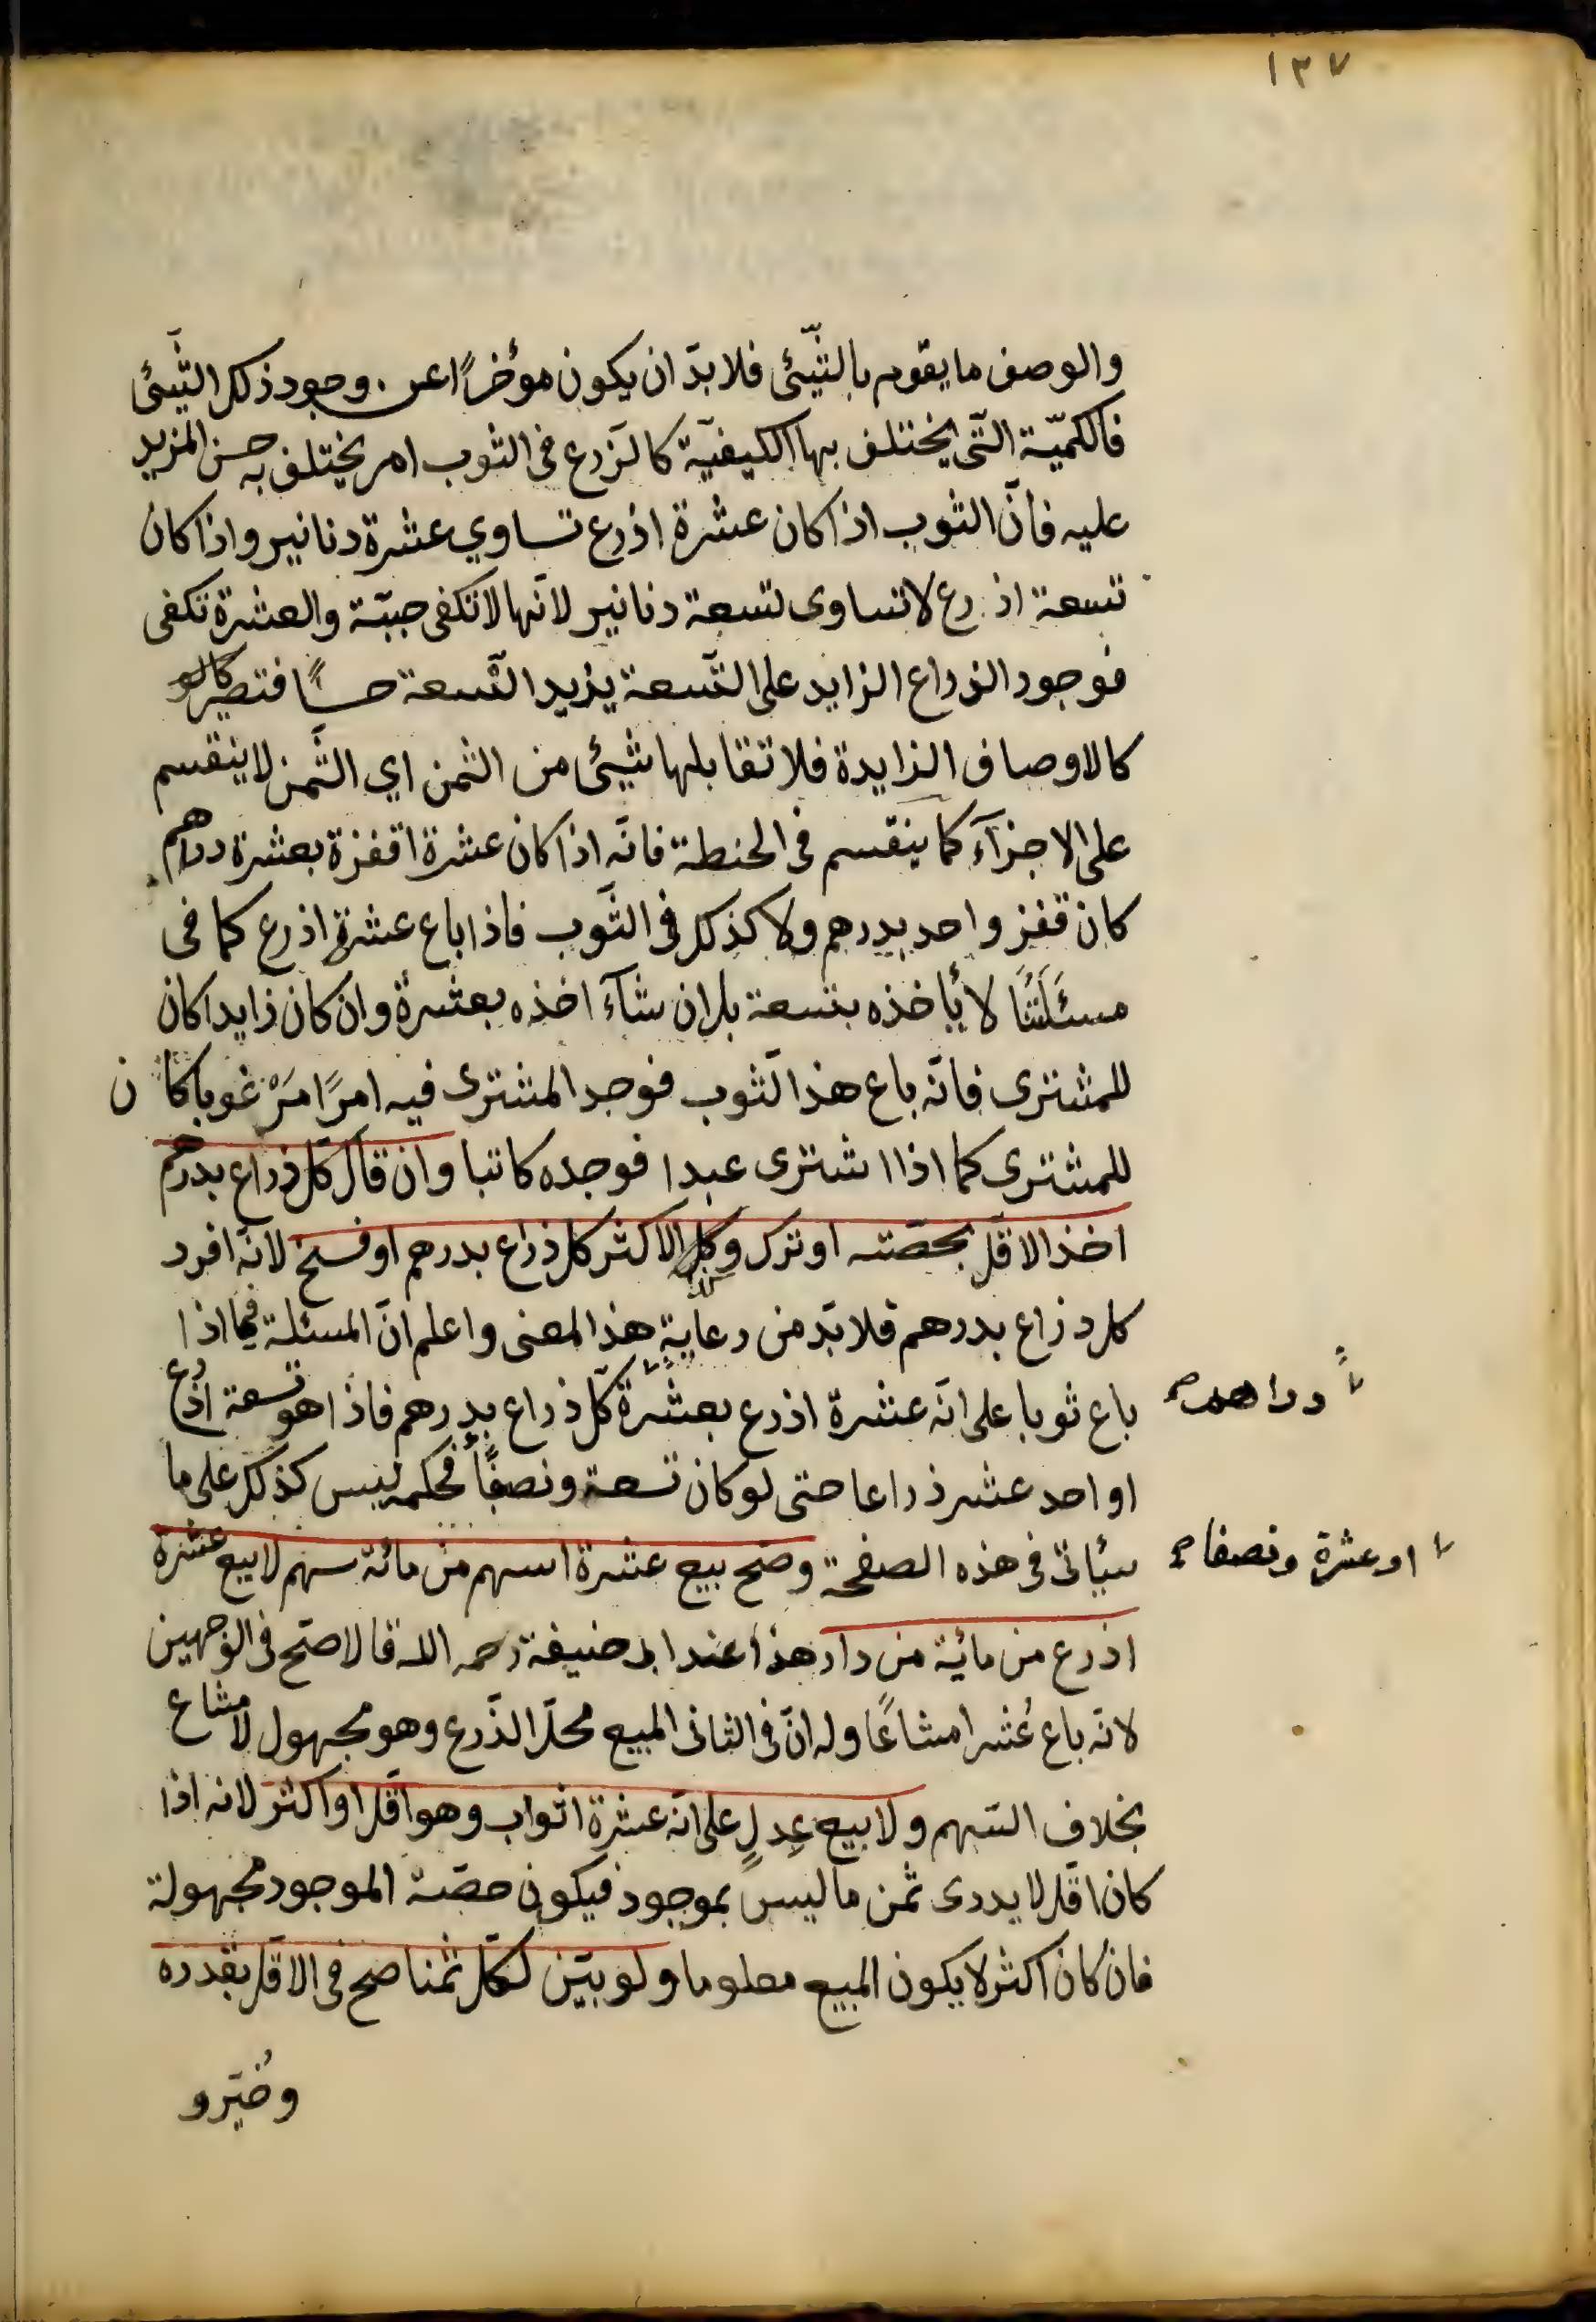 ١٣٧
والوصف ما يقوم بالشّيئ فلا بدّ ان يكون مؤخرًا عن وجود ذلك الشّيئ
فالكميّة الّتى يختلف بها الكيفيّة كالذرع فى الثوب امر يختلف به حسن المزيد
عليه فانّ الثوب اذا كان عشرة اذرع تساوي عشرة دنانير واذا كان
تسعة اذرع لا تساوى تسعة دنانير لانّها لا تكفى جبّة والعشرة تكفى
فوجود الذراع الزايد على التّسعة يزيد التّسعة حسنًا فتصير
كالاوصاف الزايدة فلا تقابلها شيئ من الثمن اي الثّمن لا ينقسم
على الاجزآء كما ينقسم فى الحنطة فانّه اذا كان عشرة اقفزة بعشرة دراهم
كان قفز واحد بدرهم ولا كذلك فى الثّوب فاذا باع عشرة اذرع كما فى
مسئلتنا لا يأخذه بتسعة بل ان شآء اخذه بعشرة وان كان زايدا كان
للمشترى فانّه باع هذا الثوب فوجد المشترى فيه امرًا مَرْغوبا كان
للمشترى كما اذا اشترى عبدا فوجده كاتبا وان قال كلّ ذراع بدرهم
اخذ الاقلّ بحصّته او ترك وكل الاكثر كل ذراع بدرهم او فسخ لانّه افرد
كل ذراع بدرهم فلا بدّ من رعاية هذا المعنى واعلم انّ المسئلة فيما اذا
باع ثوبا على انّه عشرة اذرع بعشرة كلّ ذراع بدرهم فاذا هو تسعة اذرع
دراهم صح
او احد عشر ذراعا حتى لو كان تسعة ونصفًا فحكمه ليس كذلك على ما
سيأتى فى هذه الصفحة وصح بيع عشرة اسهم من مائة سهم لا بيع عشرة
او عشرة ونصفا صح
اذرع من مائية من دار هذا عند ابى حنيفة رحمه الله قالا صحّ فى الوجهين
لانّه باع عُشرا مشاعًا وله انّ فى الثانى المبيع محلّ الذّرع وهو مجهول لا مشاع
بخلاف السّهم ولا بيع عِدلٍ على انّه عشرة اثواب وهو اقل او اكثر لانه اذا
كان اقلّ لا يدرى ثمن ما ليس بموجود فيكون حصّة الموجود مجهولة
فان كان اكثر لا يكون المبيع معلوما ولو بيّن لكلّ ثمنا صح فى الاقلّ بقدره
وخُيّر و